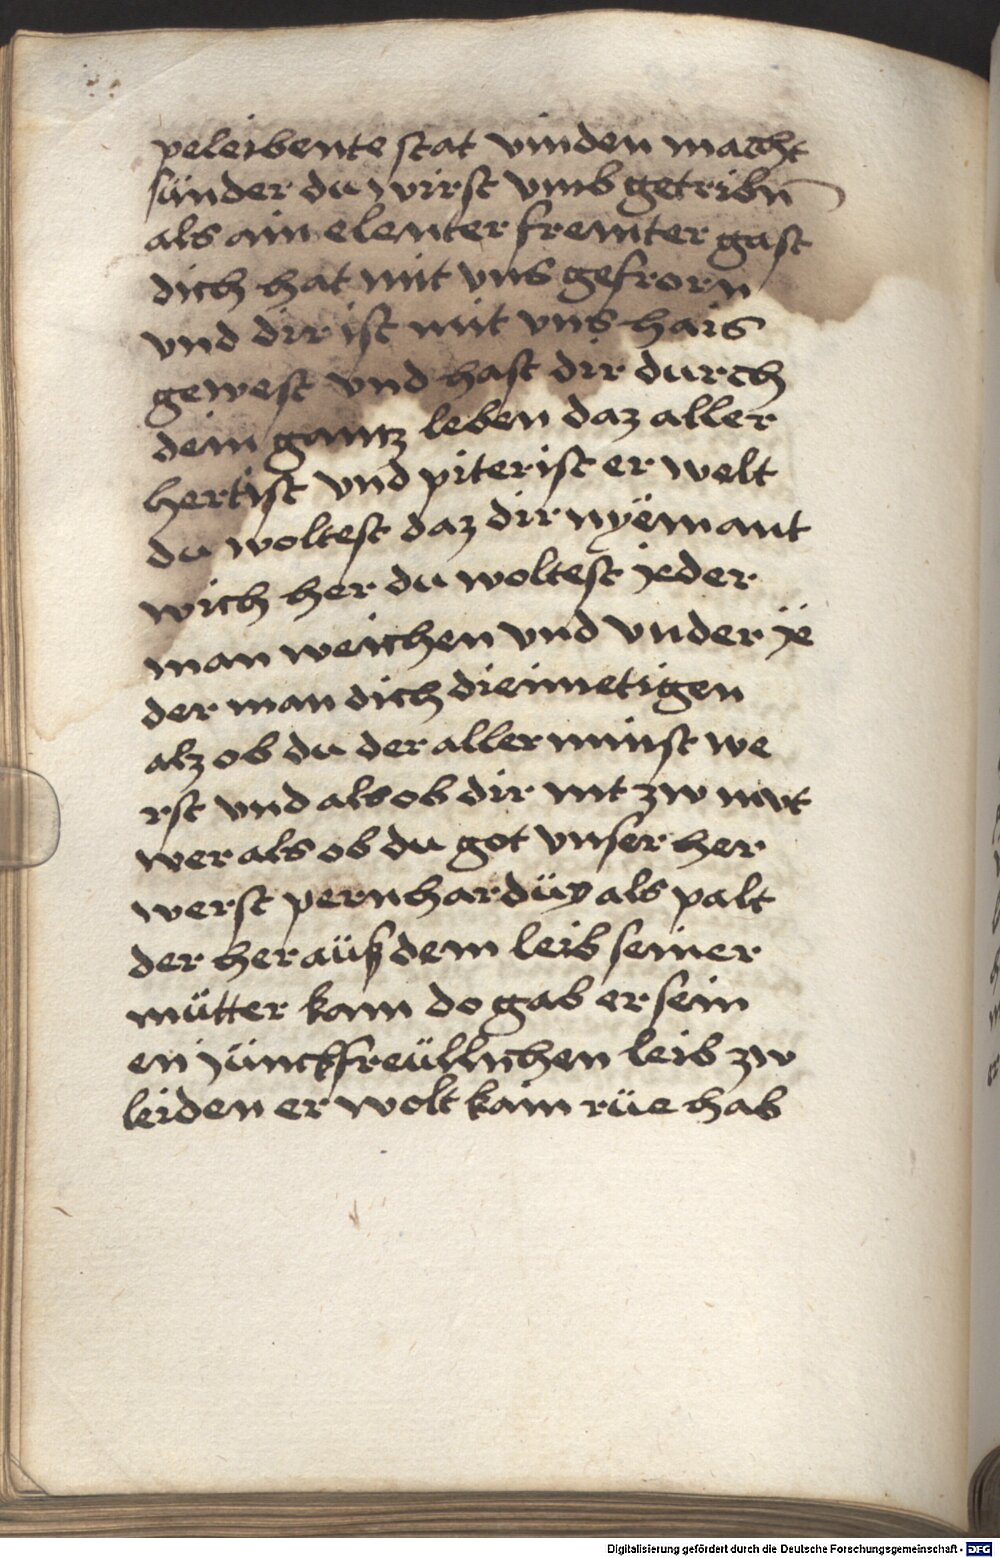 peleibente stat vinden macht
sünder du wirst vmb getribn̄
als ain elenter fremter gast
dich hat mit vns gefrorn
vnd dir ist mit vns hais
gewest vnd hast dir durch
dein gantz leben daz aller
hertist vnd piterist er welt
du woltest daz dir nyëmant
wich her du woltest jeder
man weichen vnd vnder je
der man dich dieimetigen
alz ob du der aller minst we
rst vnd als ob dir nit zw mvt
wer als ob du got vnser her
werst pernhardüy als palt
der her aüß dem leib seiner
mütter kam do gab er sein
en jünckfreüllichen leib zw
leiden er wolt kain rüe hab
Digitalisierung gefördert durch die Deutsche Forschungsgemeinschaft - DFG